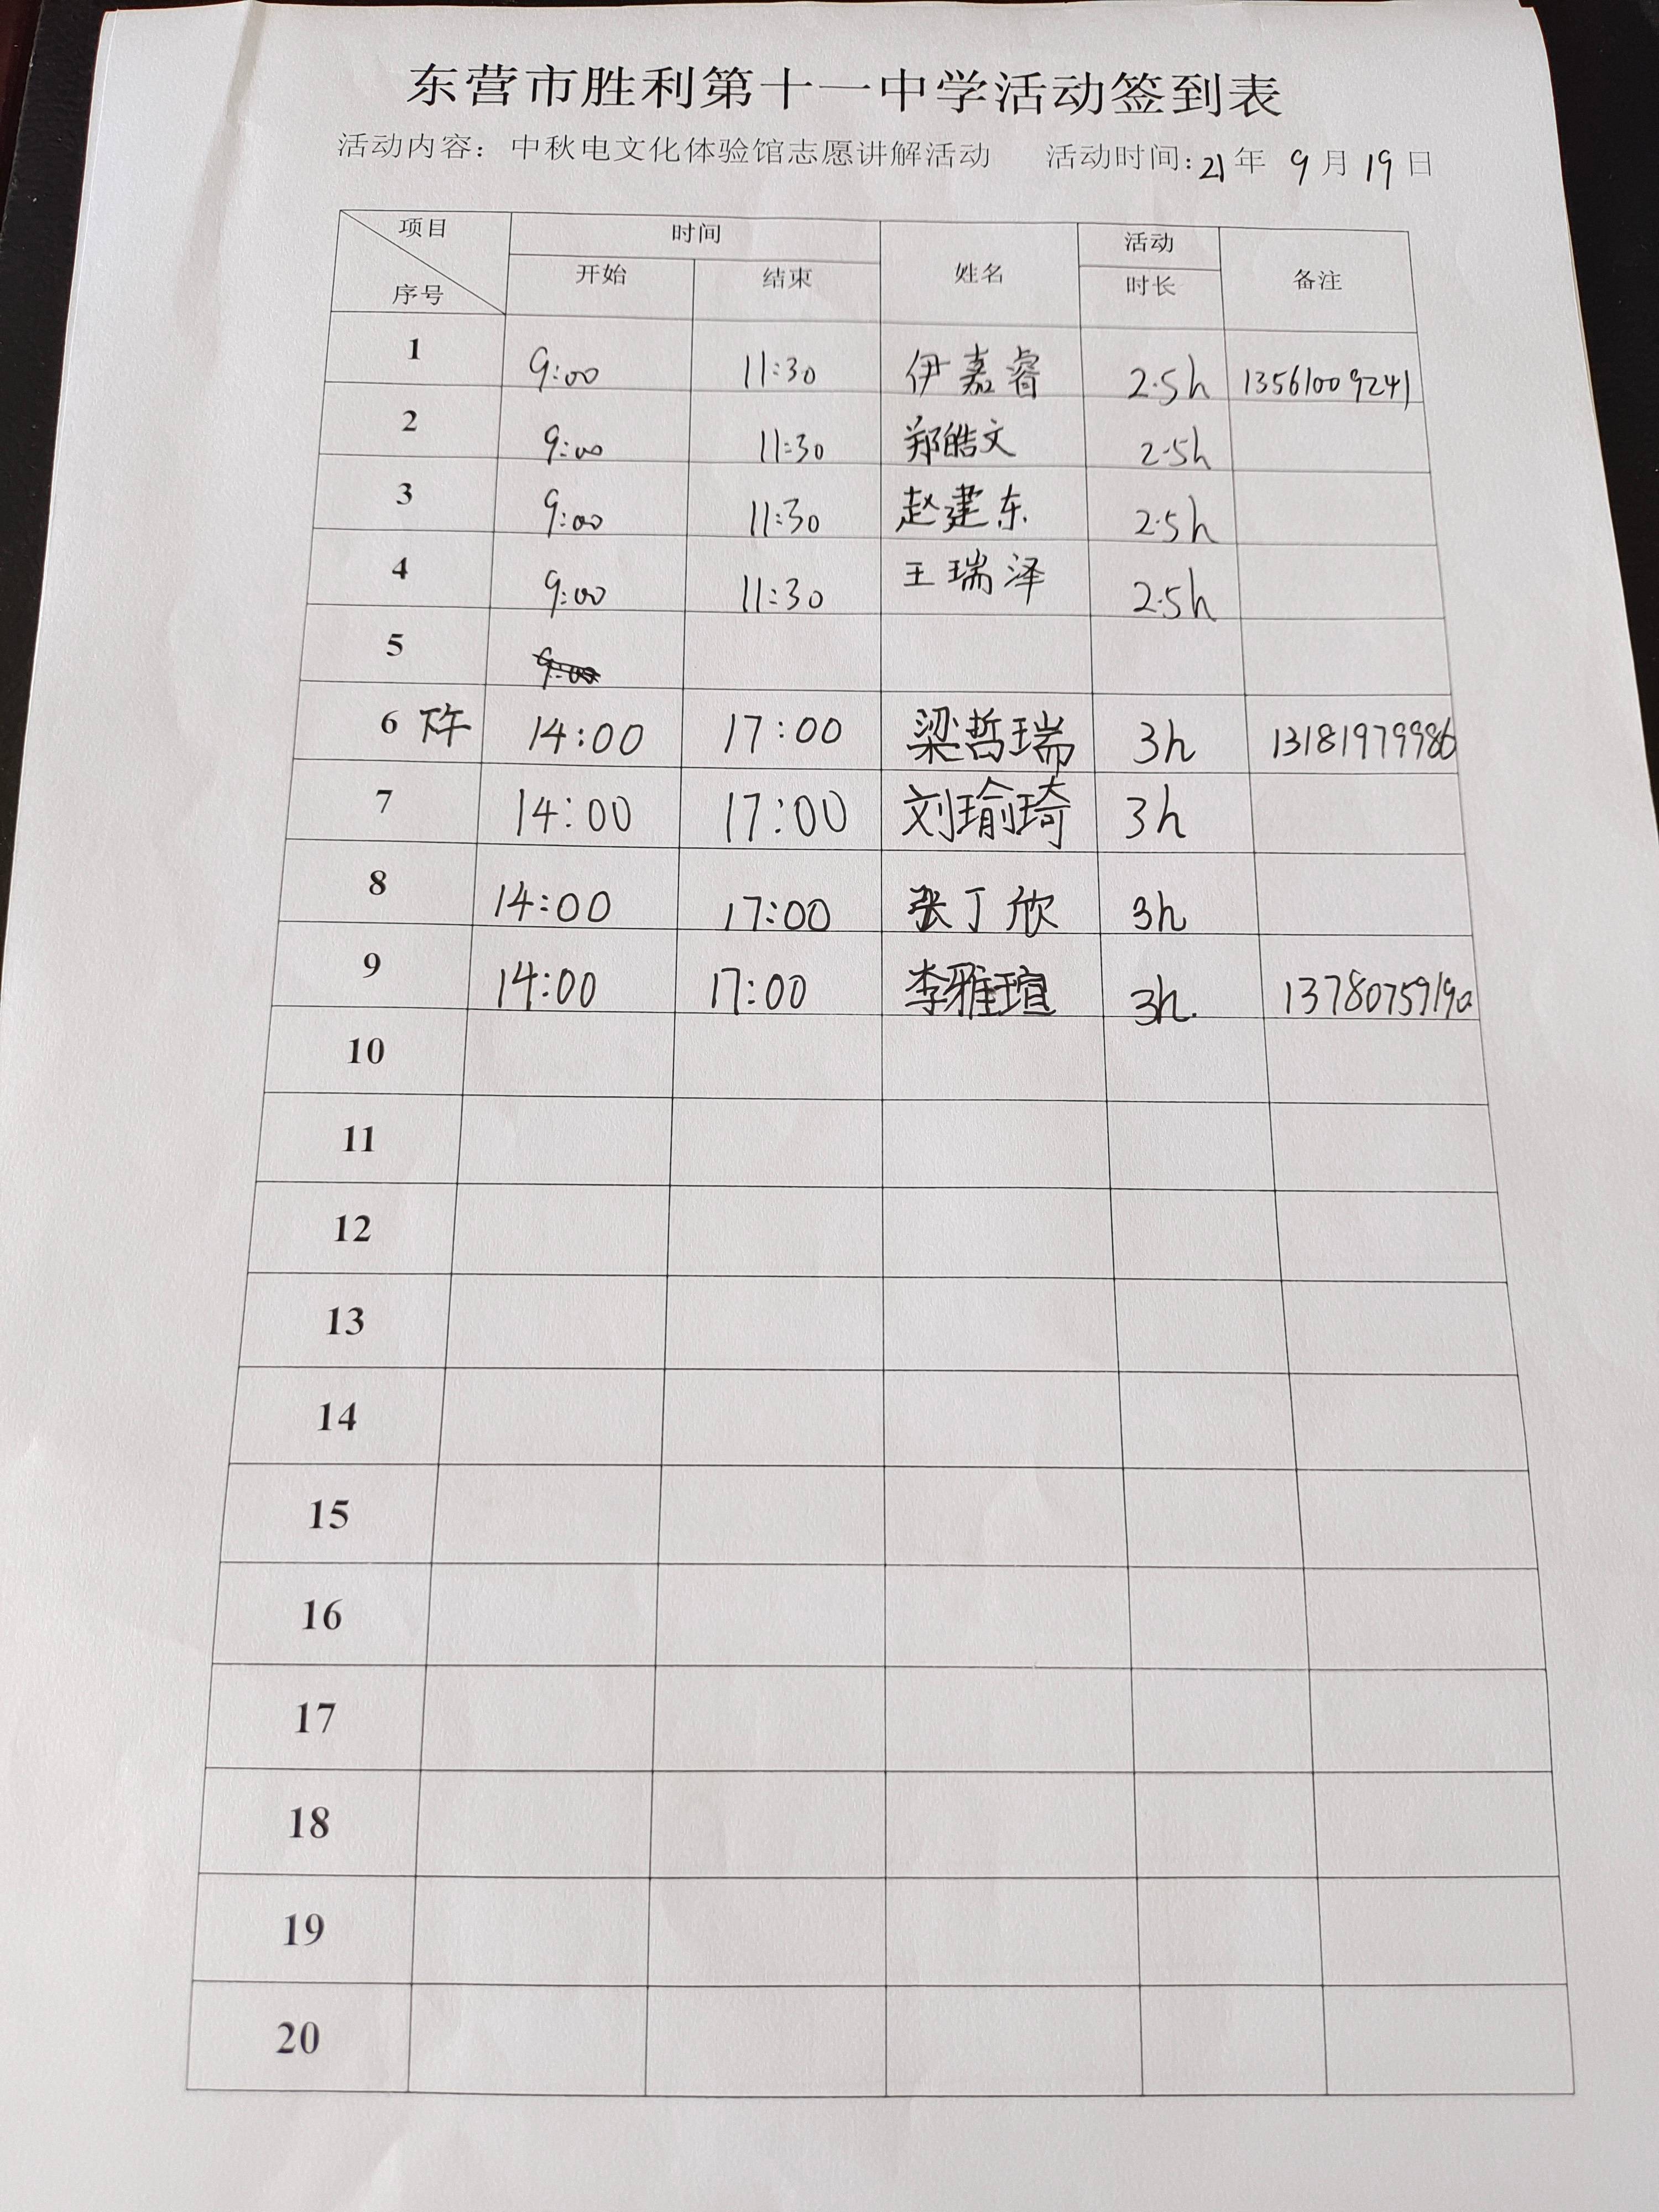 东营市胜利第十一中学活动签到表
活动内容：中秋电文化体验馆志愿讲解活动 活动时间：21年 9月19日
项目 时间 姓名 活动 备注
序号 开始 结束 时长
1 9:00 11:30 伊嘉睿 2.5h 13561009241
2 9:00 11:30 郑皓文 2.5h
3 9:00 11:30 赵建东 2.5h
4 9:00 11:30 王瑞泽 2.5h
5 9:00
6 下午 14:00 17:00 梁哲瑞 3h 13181979986
7 14:00 17:00 刘瑜琦 3h
8 14:00 17:00 张丁欣 3h
9 14:00 17:00 李雅瑄 3h. 13780759190
10
11
12
13
14
15
16
17
18
19
20